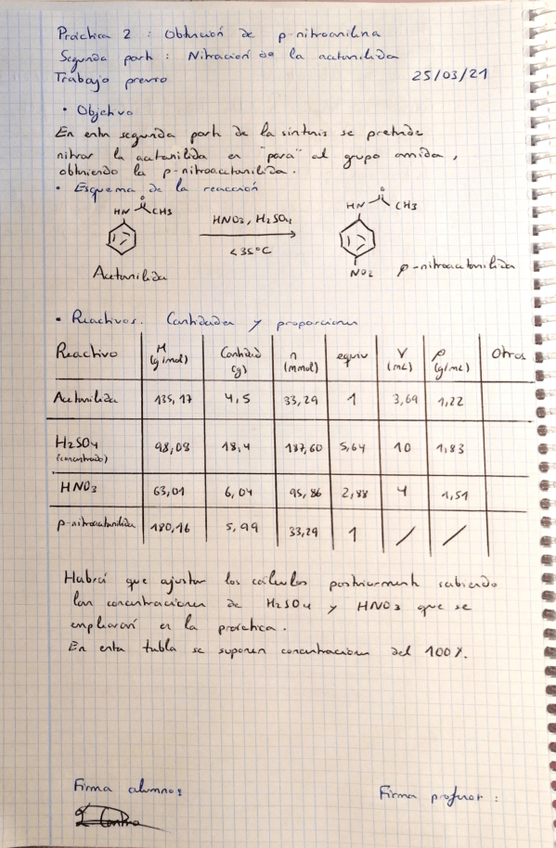 Práctica 2 : Obtención de p-nitroanilina
Segunda parte : Nitración de la acetanilida
Trabajo previo 25/03/21
• Objetivo
En esta segunda parte de la síntesis se pretende
nitrar la acetanilida en "para" al grupo amida,
obteniendo la p-nitroacetanilida.
• Esquema de la reacción
HN O CH3 HNO3, H2SO4 HN O CH3
<35°C
Acetanilida NO2 p-nitroacetanilida
• Reactivos. Cantidades y proporciones
Reactivo M (g/mol) Cantidad (g) n (mmol) equiv V (mL) ρ (g/mL) Otros
Acetanilida 135,17 4,5 33,29 1 3,69 1,22
H2SO4 (concentrado) 98,08 18,4 187,60 5,64 10 1,83
HNO3 63,01 6,04 95,86 2,88 4 1,51
p-nitroacetanilida 180,16 5,99 33,29 1 / /
Habrá que ajustar los cálculos posteriormente sabiendo
las concentraciones de H2SO4 y HNO3 que se
emplearán en la práctica.
En esta tabla se suponen concentraciones del 100%.
Firma alumno: Firma profesor :